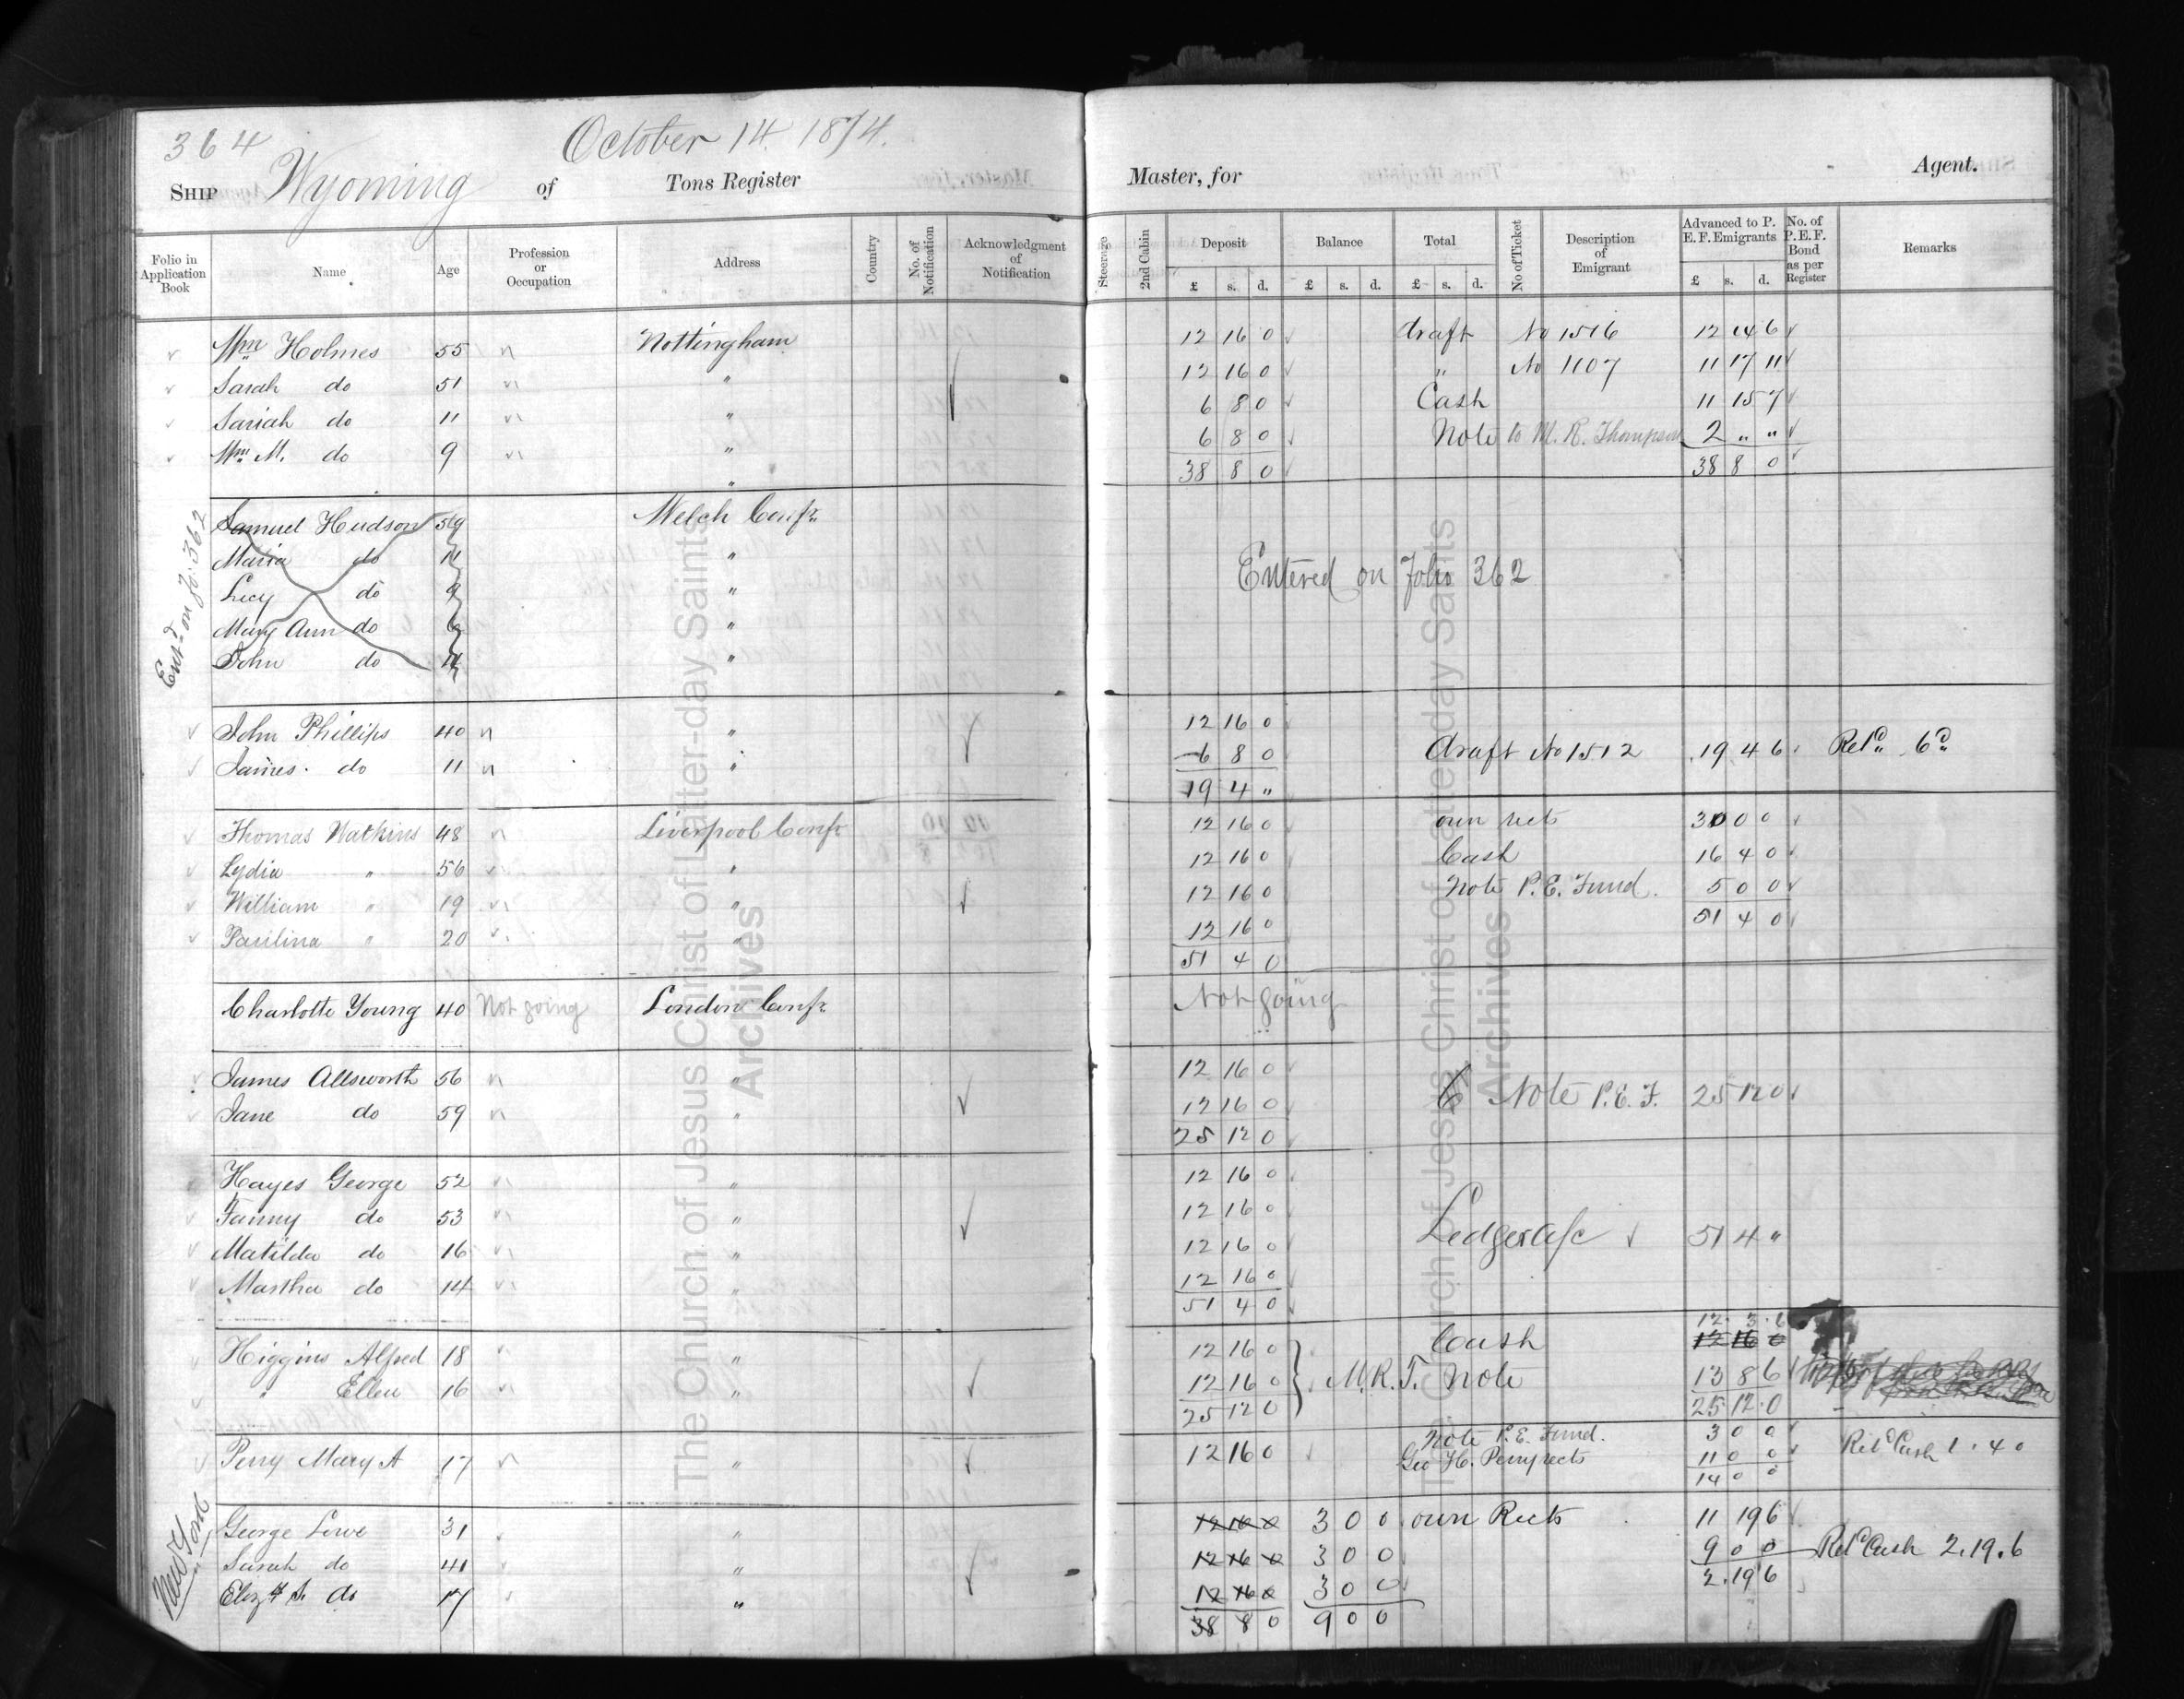 364
October 14. 1874.
SHIP Wyoming of Tons Register
Master, for Agent.
Folio in Application Book
Name
Age
Profession or Occupation
Address
Country
No. of Notification
Acknowledgment of Notification
Steerage
2nd Cabin
Deposit
Balance
Total
No of Ticket
Description of Emigrant
Advanced to P. E. F. Emigrants
No. of P. E. F. Bond as per Register
Remarks
£ s. d. £ s. d. £ s. d. £ s. d.
Wm Holmes 55 Nottingham 12 16 0 draft No 1516 12 14 6
Sarah do 51 " 12 16 0 " No 1107 11 17 11
Sariah do 11 " 6 8 0 Cash 11 15 7
Wm. M. do 9 " 6 8 0 Note to M. R. Thompson 2 " "
" 38 8 0 38 8 0
Entd on Fo. 362
Samuel Hudson 59 Welch Confr.
Maria do 11 "
Lucy do 9 " Entered on Folio 362
Mary Ann do 6 "
John do "
John Phillips 40 " 12 16 0
James. do 11 " 6 8 0 draft No 1512 19 4 6 Retd. 6d.
19 4 "
Thomas Watkins 48 Liverpool Confr 12 16 0 own rects 30 0 0
Lydia " 56 " 12 16 0 Cash 16 4 0
William " 19 " 12 16 0 Note P. E. Fund. 5 0 0
Paulina " 20 " 12 16 0 51 4 0
51 4 0
Charlotte Young 40 Not going London Confr. Not going
James Allsworth 56 " 12 16 0
Jane do 59 " 12 16 0 Note P. E. F. 25 12 0
25 12 0
Hayes George 52 " 12 16 0
Fanny do 53 " 12 16 0
Matilda do 16 " 12 16 0 Ledger a/c 51 4 "
Martha do 14 " 12 16 0
51 4 0
12. 3. 6
Higgins Alfred 18 " 12 16 0 Cash 12 16 0
" Ellen 16 " 12 16 0 M. R. T. Note 13 8 6
25 12 0 25 12 0
Note P. E. Fund. 3 0 0
Perry Mary A 17 " 12 16 0 Geo H. Perry rects 11 0 0 Retd Cash 1. 4 0
14 0 0
New York
George Lowe 31 " 12 16 0 3 0 0 own Rects 11 19 6
Sarah do 41 " 12 16 0 3 0 0 9 0 0 Retd Cash 2. 19. 6
Elizth S. do 17 " 12 16 0 3 0 0 2. 19 6
38 8 0 9 0 0
The Church of Jesus Christ of Latter-day Saints
Archives
The Church of Jesus Christ of Latter-day Saints
Archives